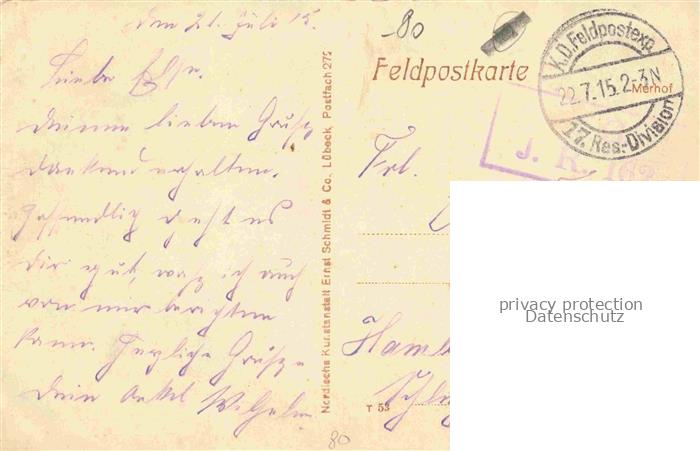 den 21. Juli 15.
Liebe Else.
Deinen lieben Gruß
dankend erhalten.
Hoffendlich geht es
Dir gut, was ich auch
von mir berichten
kann. Herzliche Grüße
Dein Onkel Wilhelm.
Nordische Kunstanstalt Ernst Schmidt & Co., Lübeck, Postfach 279
80
Feldpostkarte
K.D. Feldpostexp.
22.7.15. 2-3 N
17. Res.-Division
Merhof
J. R. 162
Frl.
privacy protection
Datenschutz
Hamb
T 53
80